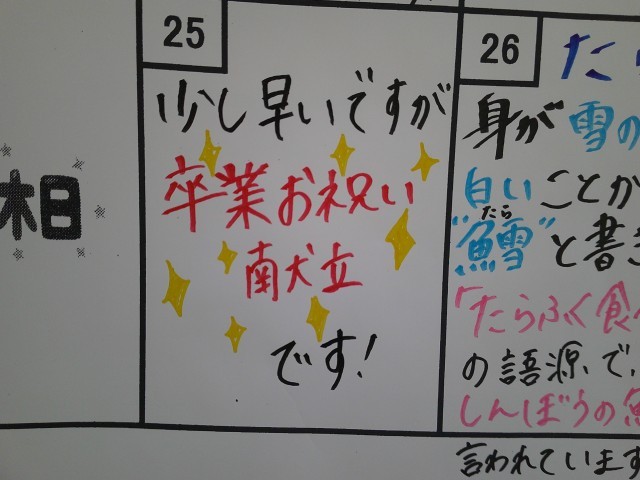 25
少し早いですが
卒業お祝い
献立
です!
26
たら
身が雪の
白いことか
たら
"鱈"と書き
「たらふく食
の語源で、
しんぼうの
言われています